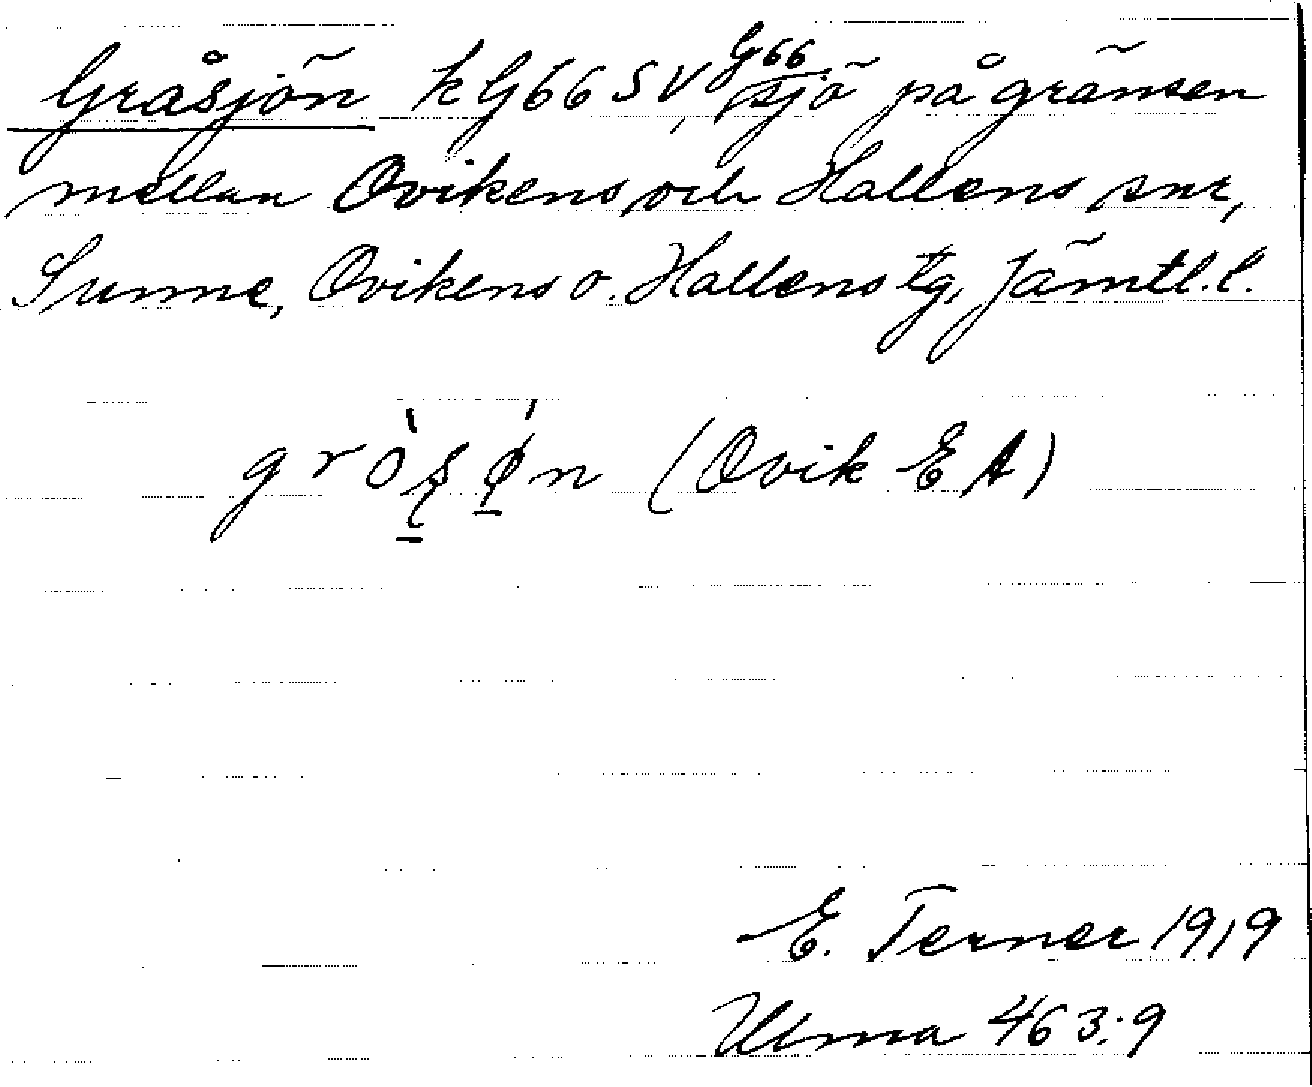 Gråsjön k G66 SV, G66 sjö på gränsen
mellan Ovikens och Hallens snr,
Sunne, Ovikens o. Hallens tg, Jämtl. l.
(Ovik EA)
E. Terner 1919
Ulma 463:9